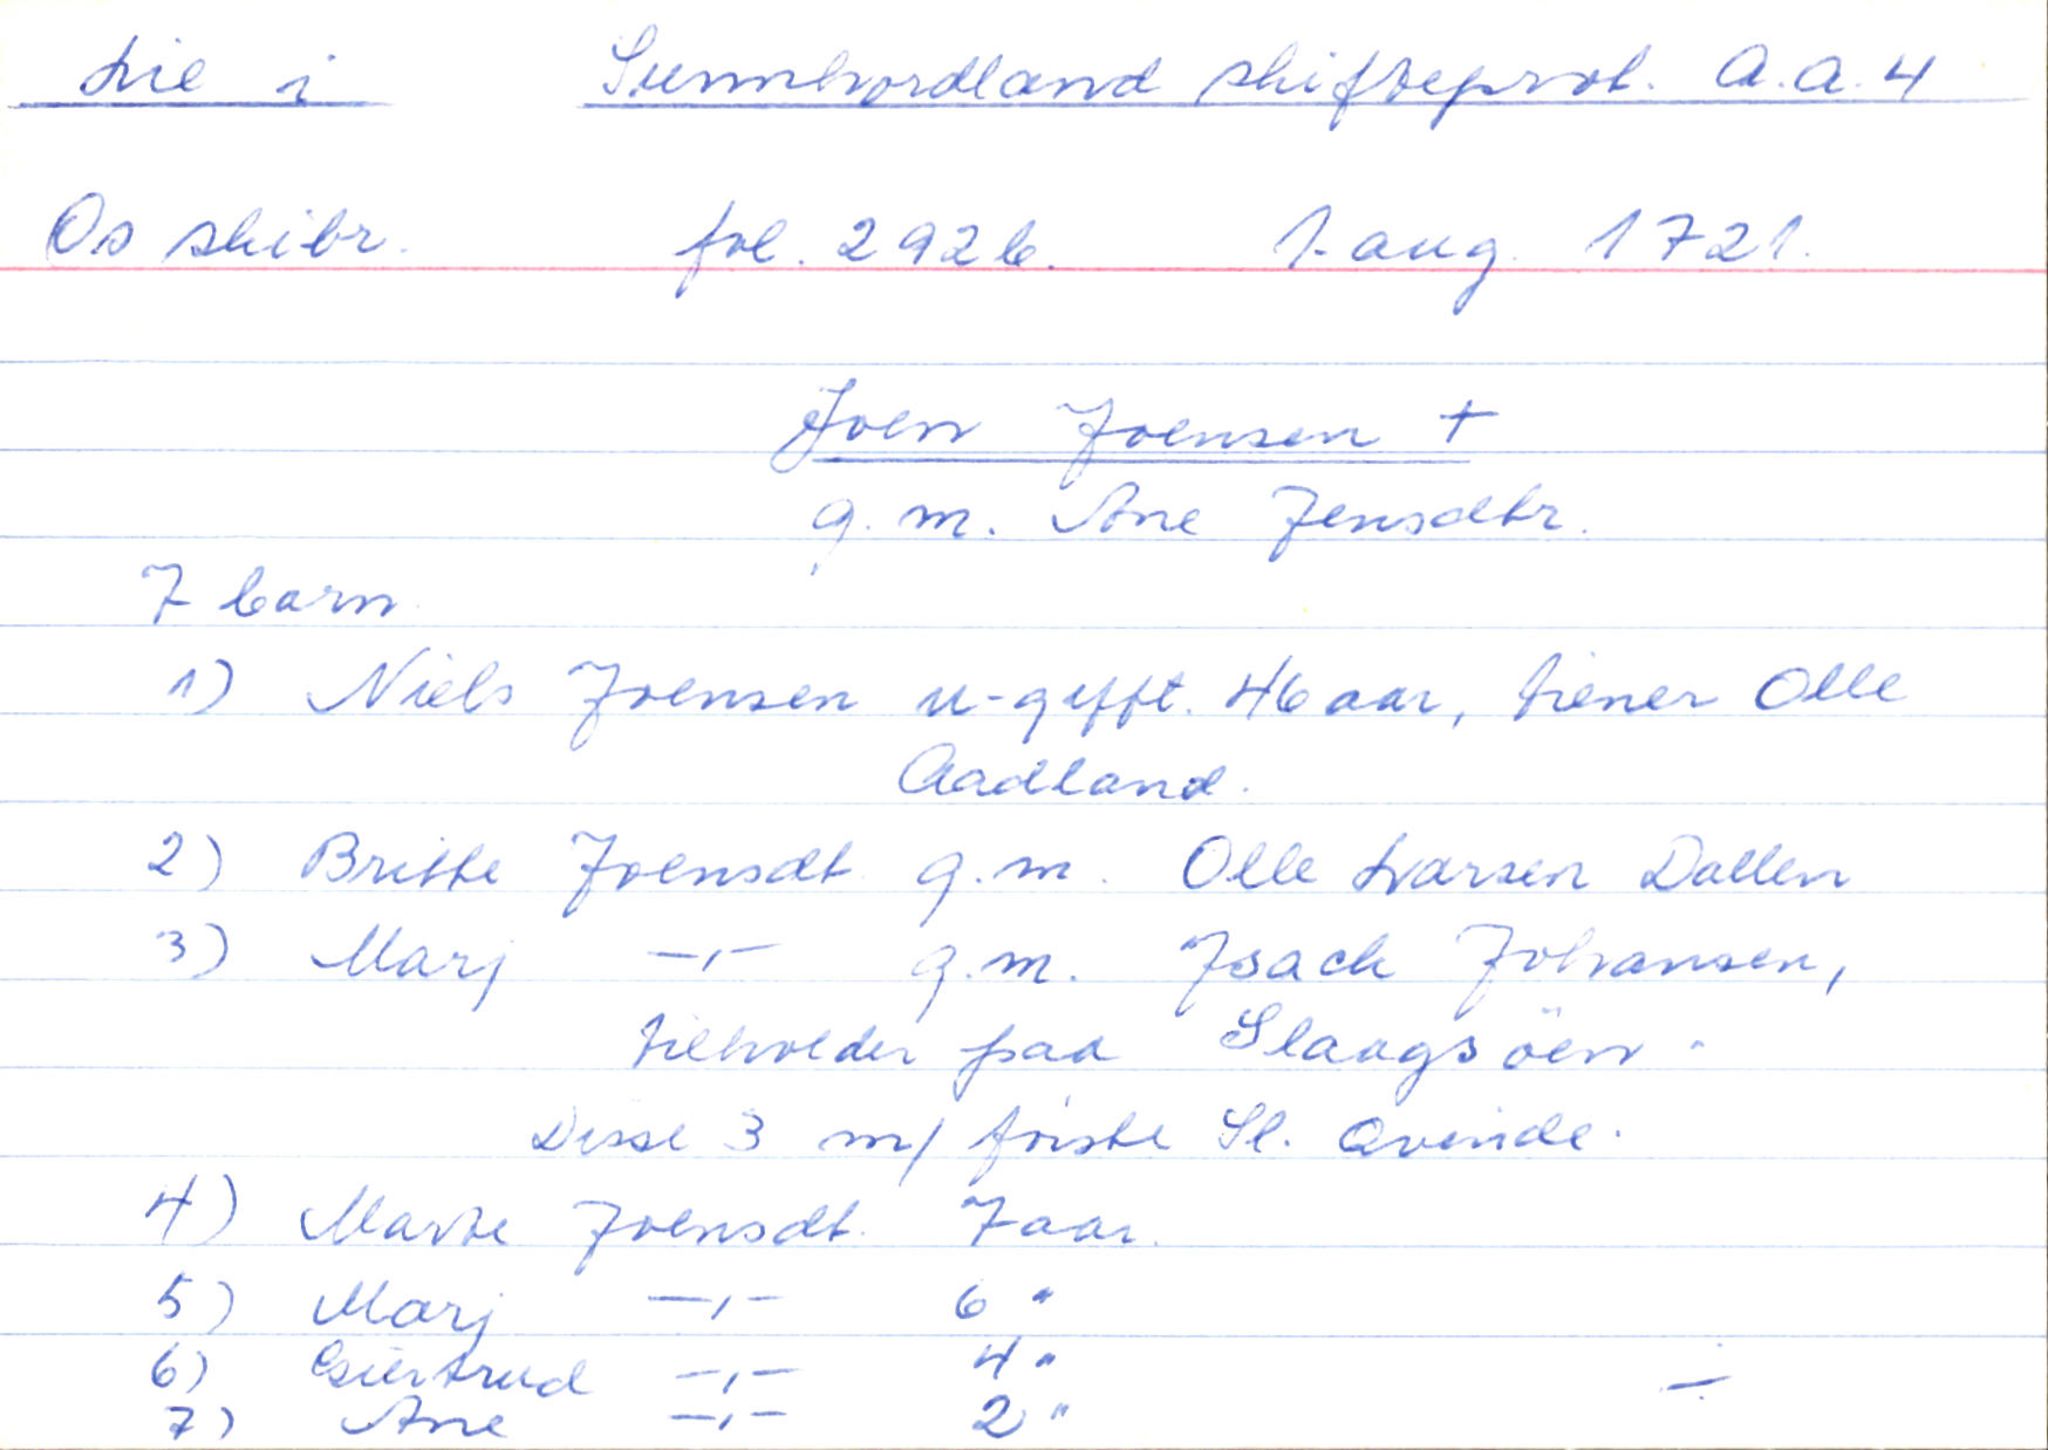 Lie i Sunnhordland skifteprot. A.a.4
Os skibr. fol. 292b. 1. aug. 1721.
Joen Joensen +
g. m. Ane Jensdtr.
7 barn
1) Niels Joensen u-gifft. 46 aar, tiener Olle
Aadland.
2) Britte Joensdt. g.m. Olle Larsen Dallen
3) Marj —,,— g.m. Isack Johansen,
tilholder paa Slaagsöen.
Disse 3 m/ föiste Sl. Qvinde.
4) Marte Joensdt. 7 aar.
5) Marj —,,— 6 "
6) Giertrud —,,— 4 "
7) Ane —,,— 2 "